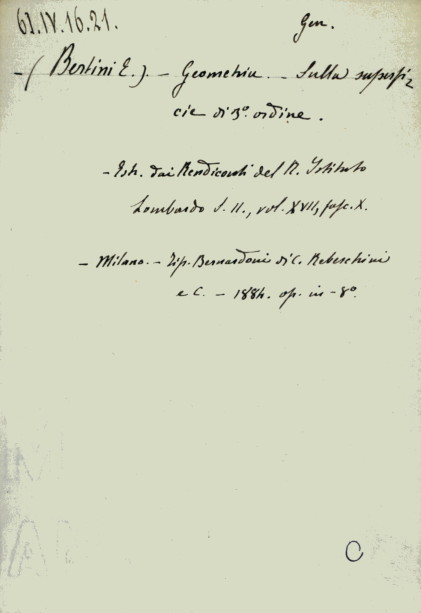 61.IV.16.21.
Gen.
- (Bertini E.). - Geometria. - Sulla superfi-
cie di 3º. ordine.
- Estr. dai Rendiconti del R. Istituto
Lombardo S. II., vol. XVII, fasc. X.
- Milano. - Tip. Bernardoni di C. Rebeschini
e C. - 1884. op. in - 8º.
C